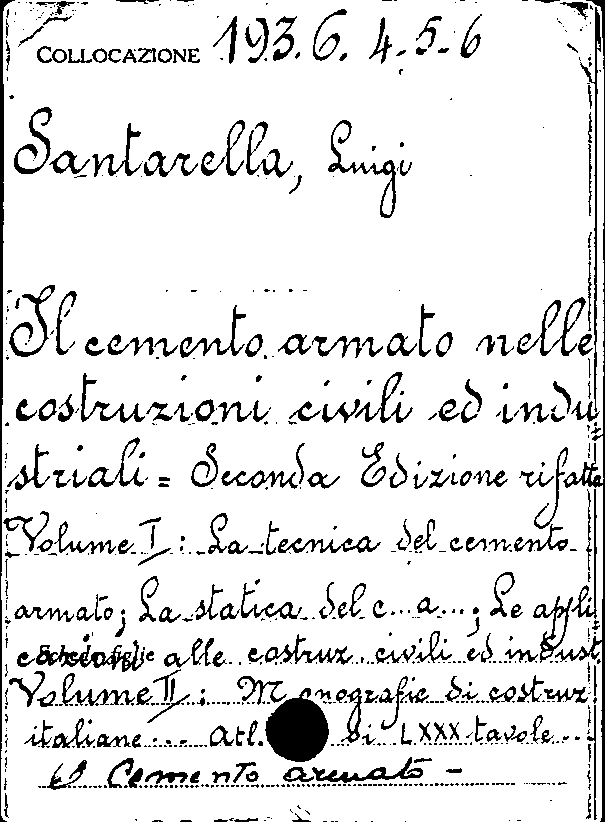 COLLOCAZIONE 193.6.4.5-6
Santarella, Luigi
Il cemento armato nelle
costruzioni civili ed indu=
striali = Seconda Edizione rifatta
Volume I: La tecnica del cemento
armato; La statica del c...a...; Le appli
alle costruz. civili ed indust.
Volume II: Monografie di costruz.
italiane... Atl. di LXXX tavole...
Cemento armato -